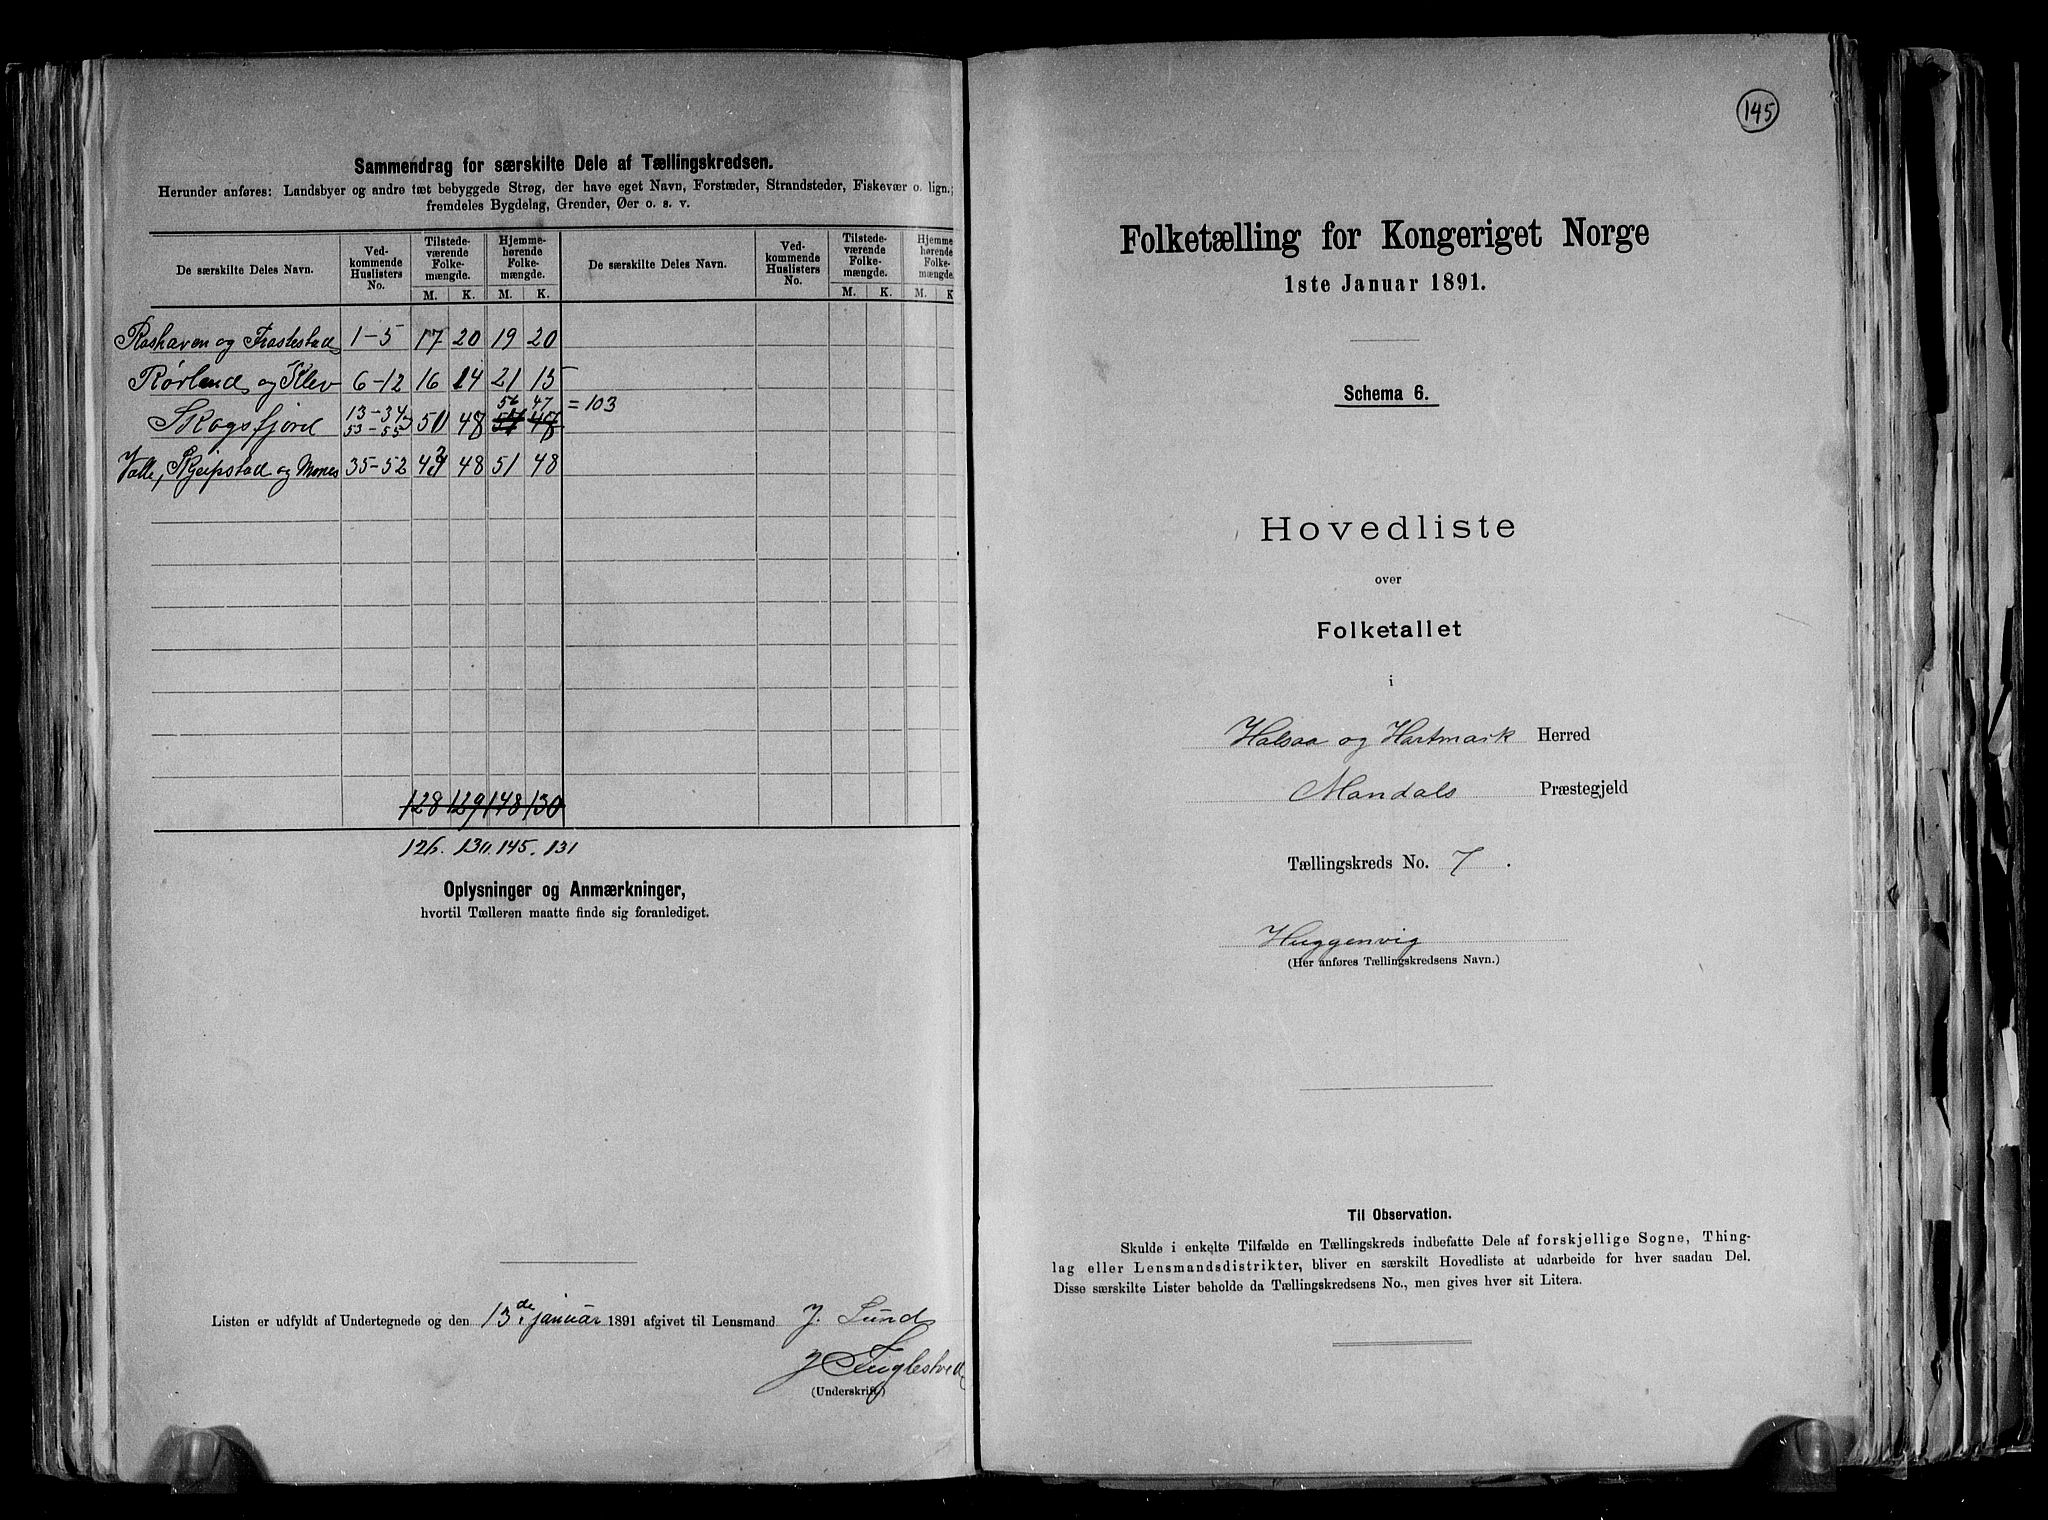 Sammendrag for særskilte Dele af Tællingskredsen.
Herunder anføres: Landsbyer og andre tæt bebyggede Strøg, der have eget Navn, Forstæder, Strandsteder, Fiskevær o. lign.;
fremdeles Bygdelag, Grender, Øer o. s. v.
De særskilte Deles Navn. Ved-kommende Huslisters No. Tilstede-værende Folke-mængde. Hjemme-hørende Folke-mængde. De særskilte Deles Navn. Ved-kommende Huslisters No. Tilstede-værende Folke-mængde. Hjemme-hørende Folke-mængde.
M. K. M. K. M. K. M. K
Roshaven og Frostestad 1-5 17 20 19 20
Rørland og Klev 6-12 16 14 21 15
56 47
Skogsfjord 13-34 50 48 = 103
53-55
Valle, Skjeipstad og Mones 35-52 43 48 51 48
128 129 148 130
126. 130. 145. 131
Oplysninger og Anmærkninger,
hvortil Tælleren maatte finde sig foranlediget.
Listen er udfyldt af Undertegnede og den 13de januar 1891 afgivet til Lensmand J. Lund
J Fuglestved
(Underskrift)
145
Folketælling for Kongeriget Norge
1ste Januar 1891.
Schema 6.
Hovedliste
over
Folketallet
i
Halsaa og Hartmark Herred
Mandals Præstegjeld
Tællingskreds No. 7.
Huggenvig
(Her anføres Tællingskredsens Navn.)
Til Observation.
Skulde i enkelte Tilfælde en Tællingskreds indbefatte Dele af forskjellige Sogne, Thing-
lag eller Lensmandsdistrikter, bliver en særskilt Hovedliste at udarbeide for hver saadan Del.
Disse særskilte Lister beholde da Tællingskredsens No., men gives hver sit Litera.